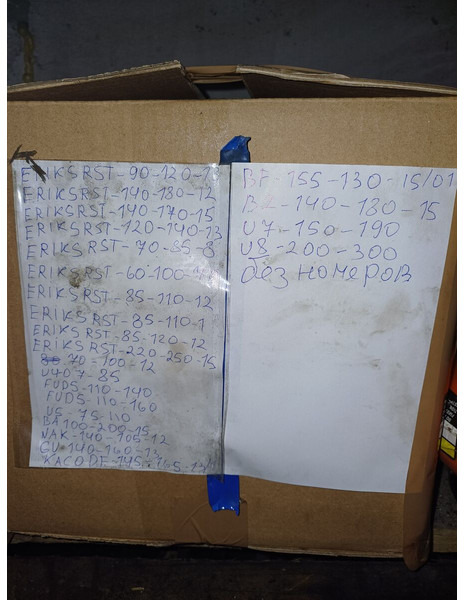 ERIKS RST-90-120-13
ERIKS RST-140-180-12
ERIKS RST-140-170-15
ERIKS RST-120-140-13
ERIKS RST-70-85-8
ERIKS RST-60-100-
ERIKS RST-85-110-12
ERIKS RST-85-110-1
ERIKS RST-85-120-12
ERIKS RST-220-250-15
70-100-12
U40 7-85
FUD5-110-140
FUD5-110-160
US-75-110
BA100-200-15
NAK-140-105-12
GU-140-160-13
KACO DE-145-165-13
BF-155-130-15/01
-140-180-15
U7-150-190
U8-200-300
без номеров